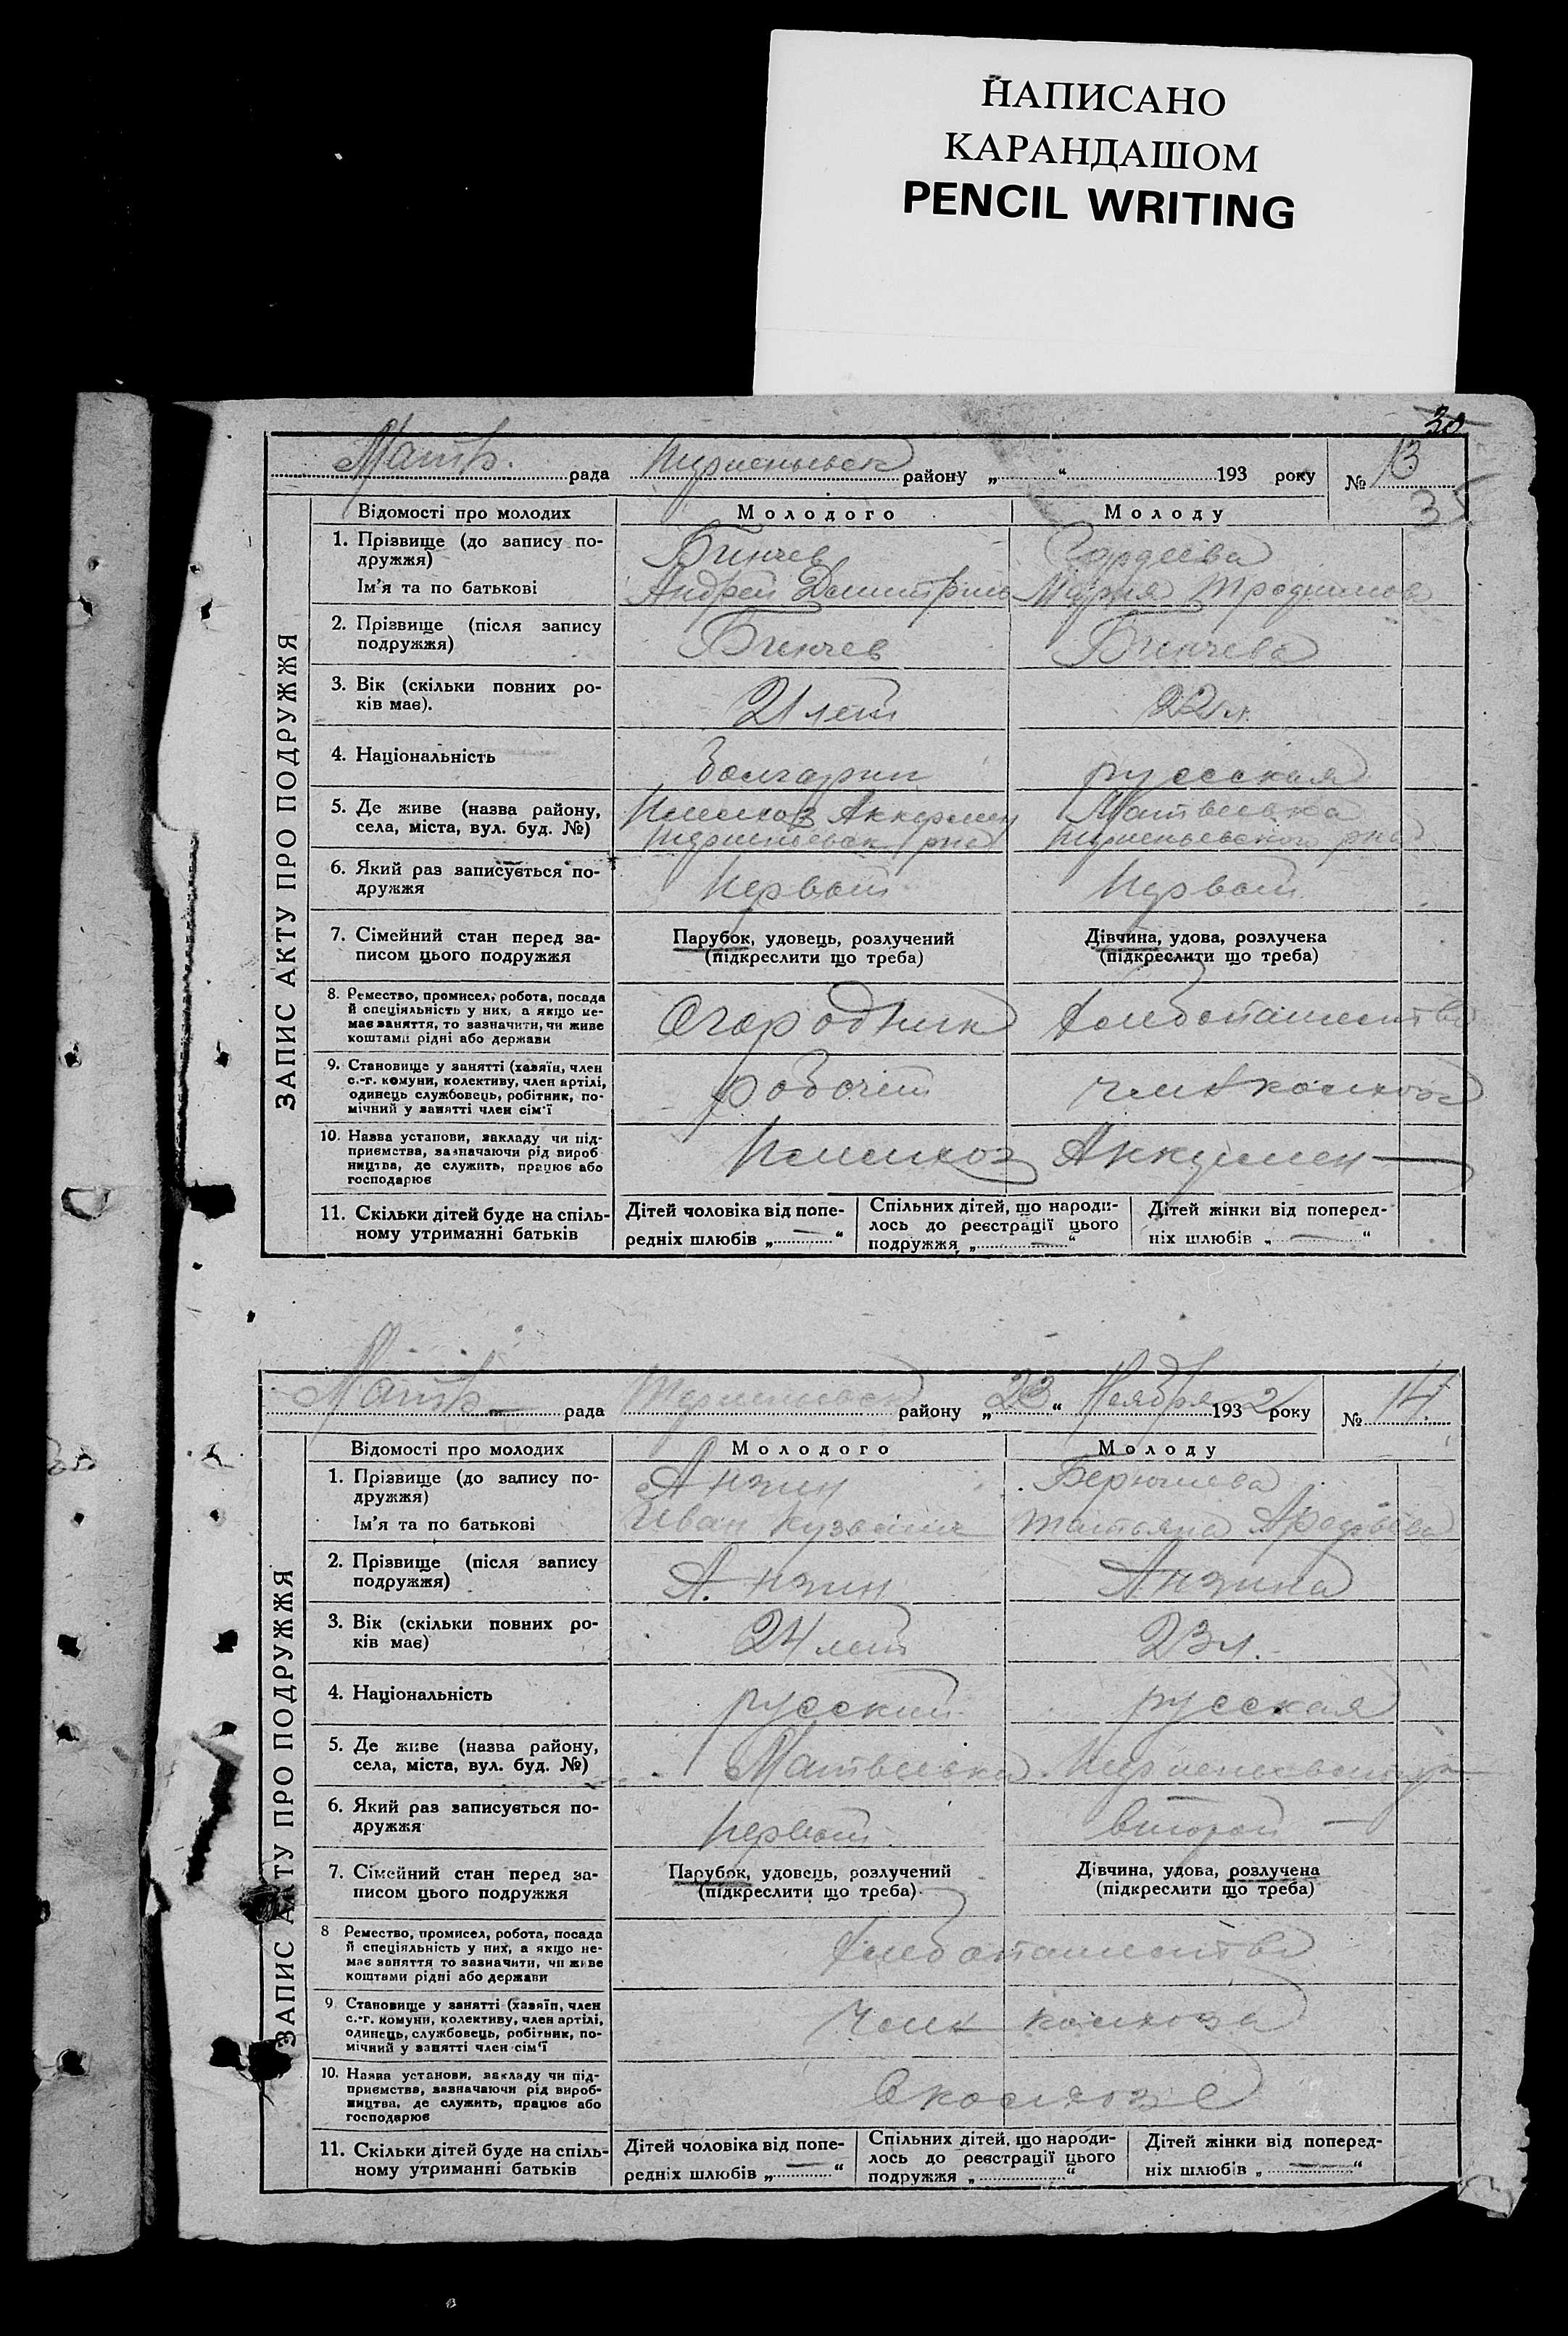 НАПИСАНО
КАРАНДАШОМ
PENCIL WRITING
30
Матв. рада района „ “ 193 року № 13
35
ЗАПИС АКТУ ПРО ПОДРУЖЖЯ
Відомості про молодих Молодого Молоду
1. Прізвище (до запису по-
дружжя) Бинчев Гордеева
Ім'я та по батькові Андрей Дмитрив Мария Трофимов
2. Прізвище (після запису
подружжя) Бинчев Бинчева
3. Вік (скільки повних ро-
ків має). 21 лет 22 л.
4. Національність болгарин русская
5. Де живе (назва району,
села, міста, вул. буд. №) Аккермен Матвеевка
6. Який раз записується по-
дружжя Первый Первый
7. Сімейний стан перед за-
писом цього подружжя
Парубок, удовець, розлучений
(підкреслити що треба)
Дівчина, удова, розлучена
(підкреслити що треба)
8. Ремество, промисел, робота, посада
й спеціяльність у них, а якщо не-
має заняття, то зазначити, чи живе
коштами рідні або держави
Огородник Хлебопашество
9. Становище у занятті (хазяїн, член
с.-г. комуни, колективу, член артілі,
одинець службовець, робітник, по-
мічний у занятті член сім'ї
рабочий член колхоза
10. Назва установи, закладу чи під-
приємства, зазначаючи рід вироб-
ництва, де служить, працює або
господарює
Племхоз Аккермен
11. Скільки дітей буде на спіль-
ному утриманні батьків
Дітей чоловіка від попе-
редніх шлюбів „ — “
Спільних дітей, що народи-
лось до реєстрації цього
подружжя „ — “
Дітей жінки від поперед-
ніх шлюбів „ — “
Матв. рада району „23“ Ноября 1932 року № 14.
ЗАПИС АКТУ ПРО ПОДРУЖЖЯ
Відомості про молодих Молодого Молоду
1. Прізвище (до запису по-
дружжя) Анзин Берюшева
Ім'я та по батькові Иван Кузьмич Татьяна
2. Прізвище (після запису
подружжя) Анзин Анзина
3. Вік (скільки повних ро-
ків має) 24 лет 23 л.
4. Національність русский русская
5. Де живе (назва району,
села, міста, вул. буд. №) Матвеевка
6. Який раз записується по-
дружжя Первый второй —
7. Сімейний стан перед за-
писом цього подружжя
Парубок, удовець, розлучений
(підкреслити що треба)
Дівчина, удова, розлучена
(підкреслити що треба)
8 Ремество, промисел, робота, посада
й спеціяльність у них, а якщо не-
має заняття то зазначити, чи живе
коштами рідні або держави
Хлебопашество
9. Становище у занятті (хазяїн, член
с.-г. комуни, колективу, член артілі,
одинець, службовець, робітник, по-
мічний у занятті член сім'ї
Член колхоза
10. Назва установи, закладу чи під-
приємства, зазначаючи рід вироб-
ництва, де служить, працює або
господарює
В колхозе
11. Скільки дітей буде на спіль-
ному утриманні батьків
Дітей чоловіка від попе-
редніх шлюбів „ — “
Спільних дітей, що народи-
лось до реєстрації цього
подружжя „ “
Дітей жінки від поперед-
ніх шлюбів „ — “